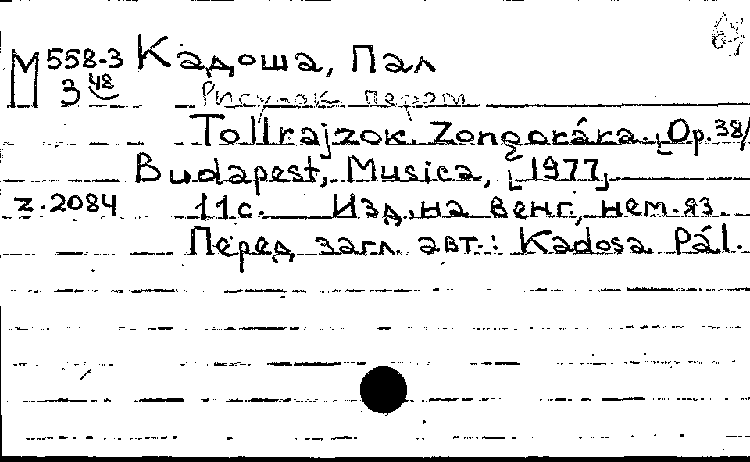 М 558-3 Кадоша, Пал
3 48 Рисунок пером
Tollrajzok. Zongorára. [Op. 38/
Budapest, Musica, [1977]
z. 2084 11 с. Изд. на венг., нем. яз.
Перед загл. авт.: Kadosa Pál.